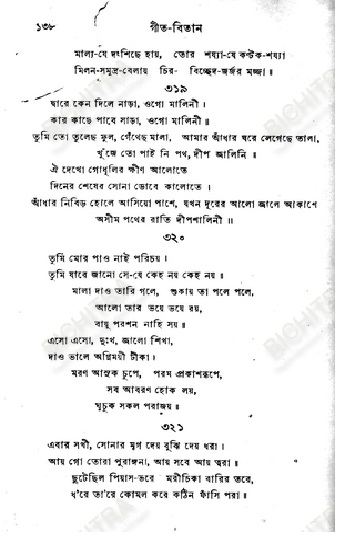 ১৩৮ গীত-বিতান
মালা-যে দংশিছে হায়, তোর শয্যা-যে কণ্টক-শয্যা
মিলন-সমুদ্র-বেলায় চির- বিচ্ছেদ-জর্জর মজ্জা ॥
৩১৯
দ্বারে কেন দিলে নাড়া, ওগো মালিনী।
কার কাছে পাবে সাড়া, ওগো মালিনী॥
তুমি তো তুলেছ ফুল, গেঁথেছ মালা, আমার আঁধার ঘরে লেগেছে তালা,
খুঁজে তো পাই নি পথ, দীপ জ্বালিনি ॥
ঐ দেখো গোধূলির ক্ষীণ আলোতে
দিনের শেষের সোনা ডোবে কালোতে।
আঁধার নিবিড় হোলে আসিয়ো পাশে, যখন দূরের আলো জ্বালে আকাশে
অসীম পথের রাতি দীপশালিনী ॥
৩২০
তুমি মোর পাও নাই পরিচয়।
তুমি যারে জানো সে-যে কেহ নয় কেহ নয়।
মালা দাও তারি গলে, শুকায় তা পলে পলে,
আলো তার ভয়ে ভয়ে রয়,
বায়ু পরশন নাহি সয়।
এসো এসো, দুঃখ, জ্বালো শিখা,
দাও ভালে অগ্নিময়ী টীকা।
মরণ আসুক চুপে, পরম প্রকাশরূপে,
সব আবরণ হোক লয়,
ঘুচুক সকল পরাজয় ॥
৩২১
এবার সখী, সোনার মৃগ দেয় বুঝি দেয় ধরা।
আয় গো তোরা পুরাঙ্গনা, আয় সবে আয় ত্বরা।
ছুটেছিল পিয়াস-ভরে মরীচিকা বারির তরে,
ধ'রে তা'রে কোমল করে কঠিন ফাঁসি পরা।
BICHITRA